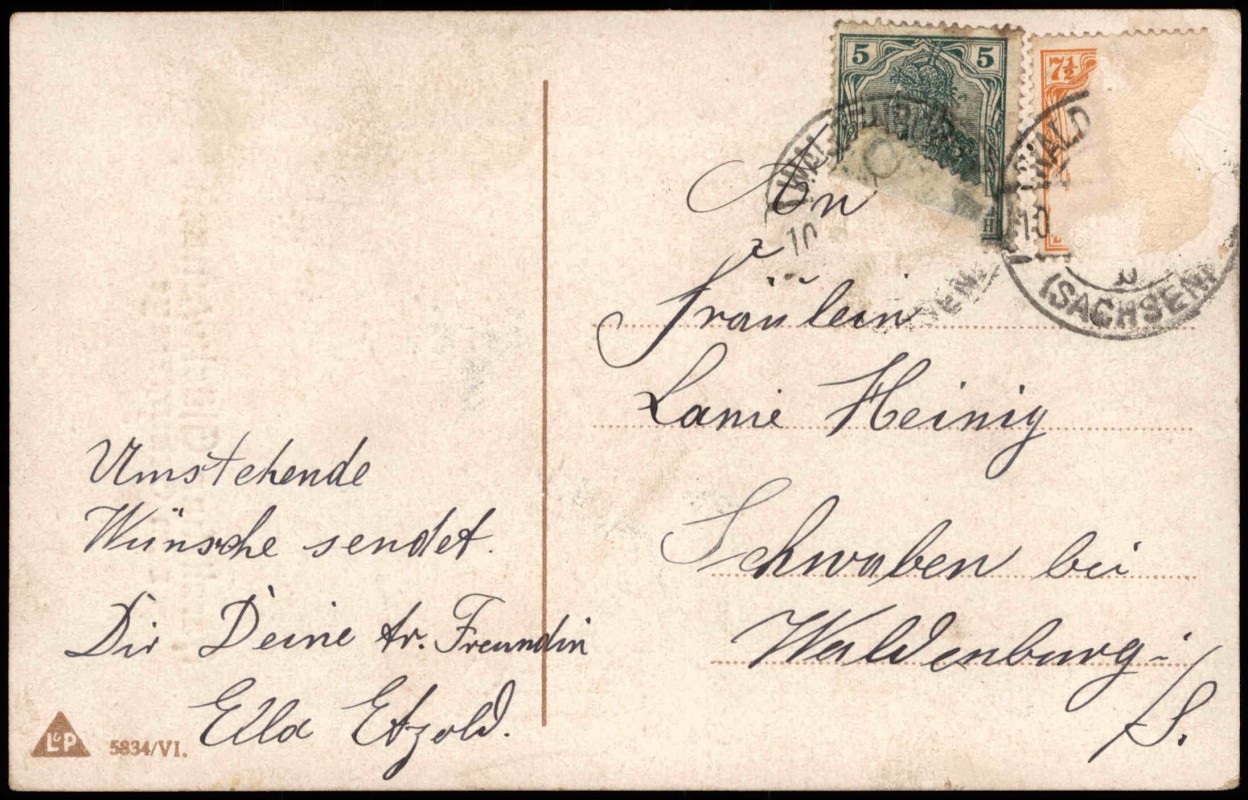 5 5
7½
WALD
10
10
(SACHSEN)
An
Fräulein
Heinig
Schwaben bei
Waldenburg i/S.
Umstehende
Wünsche sendet.
Dir Deine tr. Freundin
Ella Etzold.
L&P 5834/VI.